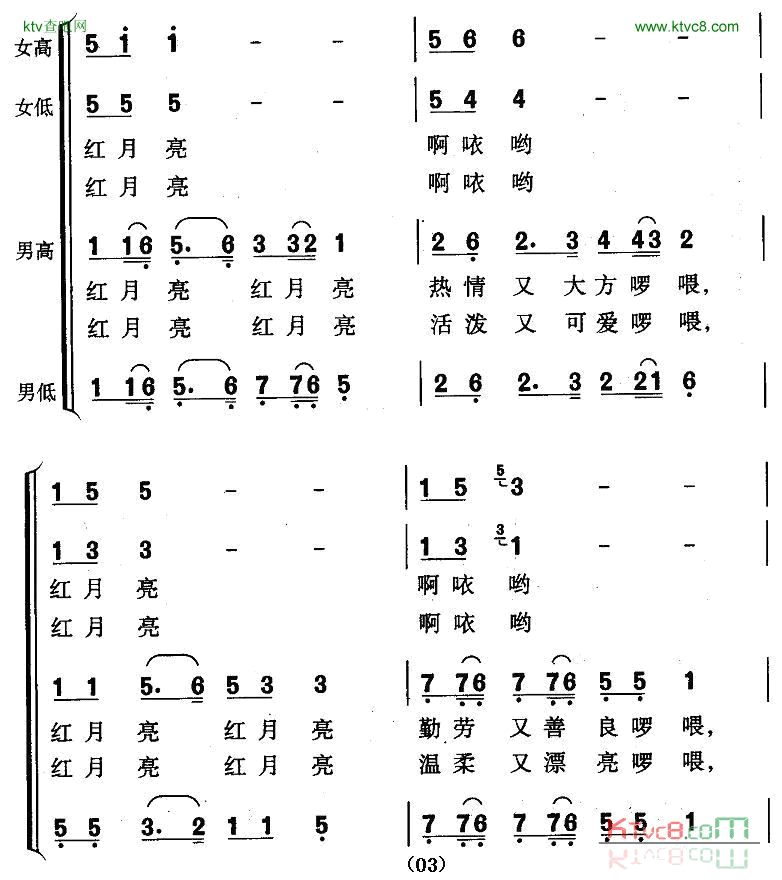 ktv查吧网 www.ktvc8.com
女高 5 i i - - | 5 6 6 - - |
女低 5 5 5 - - | 5 4 4 - - |
红月亮 啊咴哟
红月亮 啊咴哟
男高 1 16 5. 6 3 32 1 | 2 6 2. 3 4 43 2
红月亮 红月亮 热情又大方啰喂,
红月亮 红月亮 活泼又可爱啰喂,
男低 1 16 5. 6 7 76 5 | 2 6 2. 3 2 21 6
1 5 5 - - | 1 5 5 3 - - |
1 3 3 - - | 1 3 3 1 - - |
红月亮 啊咴哟
红月亮 啊咴哟
1 1 5. 6 5 3 3 | 7 76 7 76 5 5 1
红月亮 红月亮 勤劳又善良啰喂,
红月亮 红月亮 温柔又漂亮啰喂,
5 5 3. 2 1 1 5 | 7 76 7 76 5 5 1
KTvc8.com
(03)